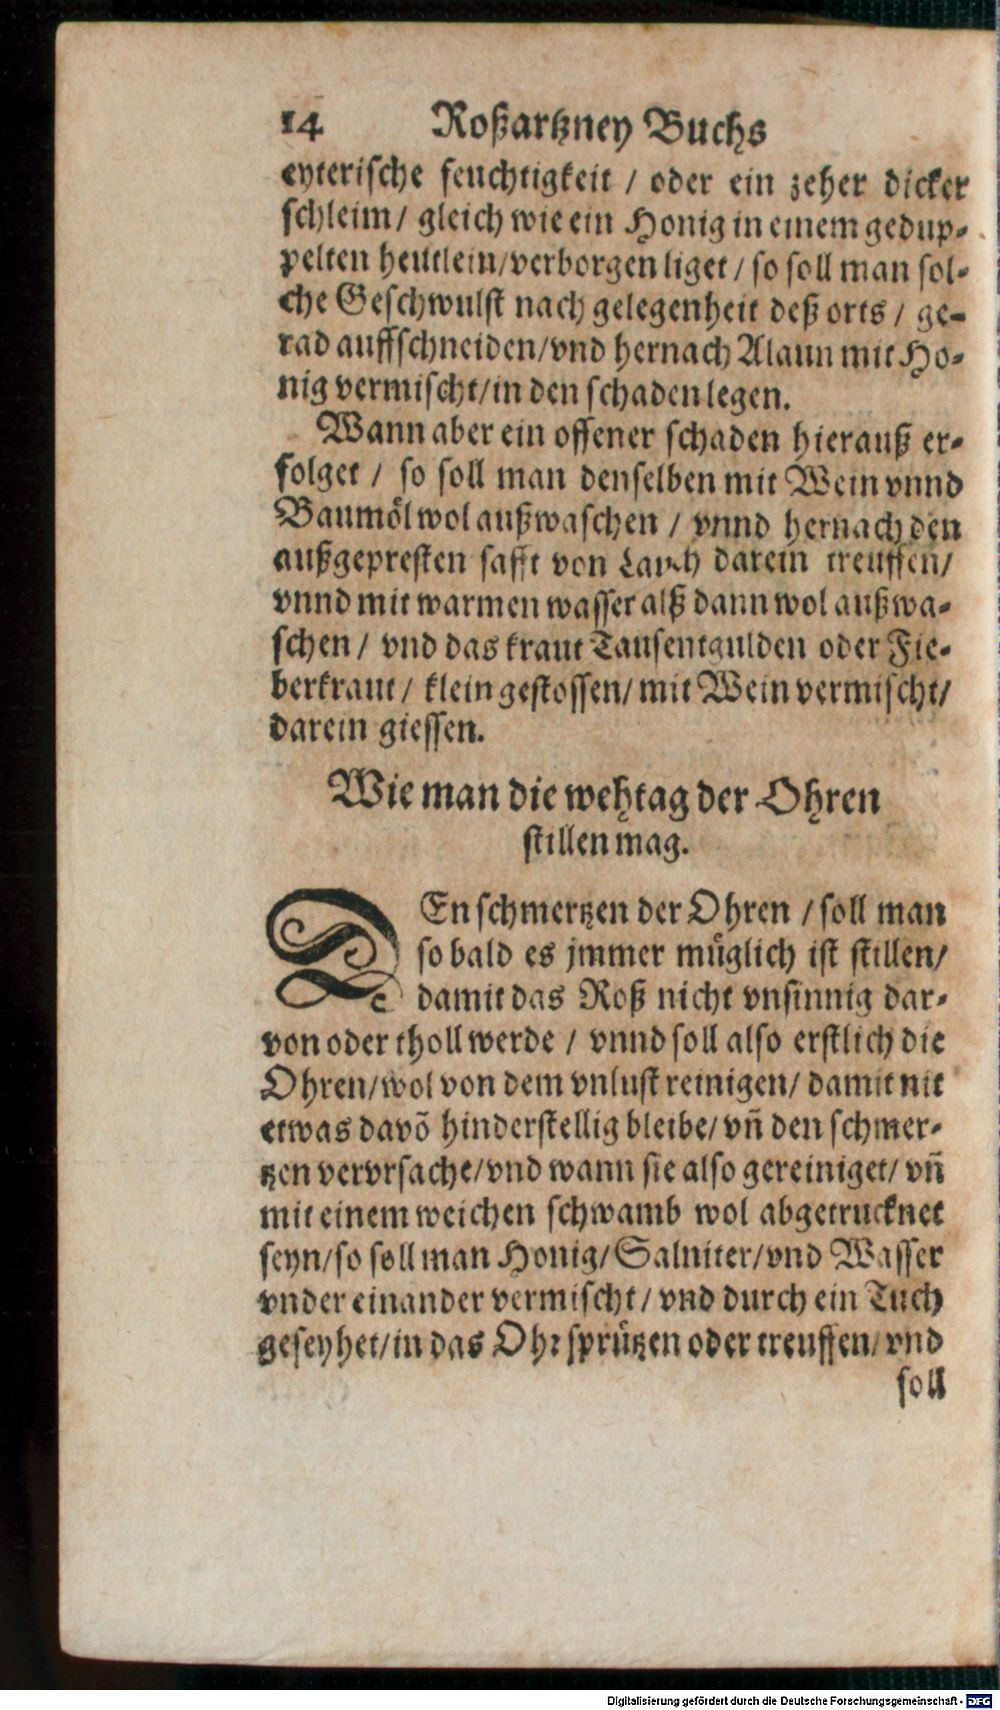 14 Roßartzney Buchs
eyterische feuchtigkeit / oder ein zeher dicker
schleim / gleich wie ein Honig in einem gedup-
pelten heutlein / verborgen liget / so soll man sol-
che Geschwulst nach gelegenheit deß orts / ge-
rad auffschneiden / vnd hernach Alaun mit Ho-
nig vermischt / in den schaden legen.
Wann aber ein offener schaden hierauß er-
folget / so soll man denselben mit Wein vnnd
Baumöl wol außwaschen / vnnd hernach den
außgepresten safft von Lauch darein treuffen /
vnnd mit warmen wasser alß dann wol außwa-
schen / vnd das kraut Tausentgulden oder Fie-
berkraut / klein gestossen / mit Wein vermischt /
darein giessen.
Wie man die wehtag der Ohren
stillen mag.
DEn schmertzen der Ohren / soll man
so bald es jmmer müglich ist stillen /
damit das Roß nicht vnsinnig dar-
von oder tholl werde / vnnd soll also erstlich die
Ohren / wol von dem vnlust reinigen / damit nit
etwas davõ hinderstellig bleibe / vñ den schmer-
tzen vervrsache / vnd wann sie also gereiniget / vñ
mit einem weichen schwamb wol abgetrucknet
seyn / so soll man Honig / Salniter / vnd Wasser
vnder einander vermischt / vnd durch ein Tuch
geseyhet / in das Ohr sprützen oder treuffen / vnd
soll
Digitalisierung gefördert durch die Deutsche Forschungsgemeinschaft - DFG